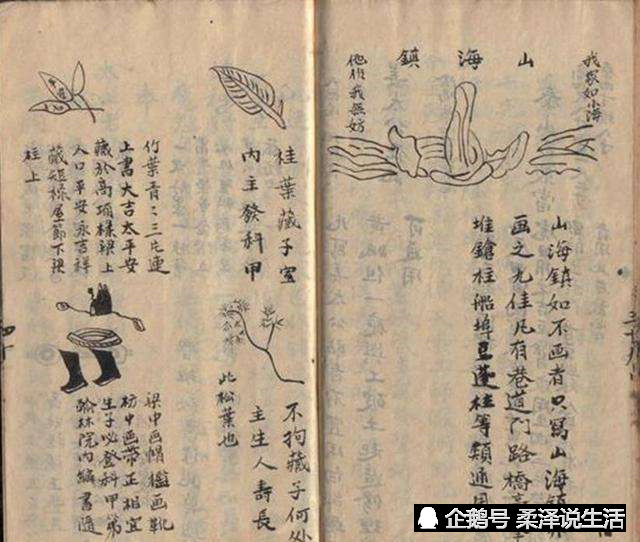 我家如山海
山海鎮
他作我無妨
山海鎮如不画者只寫山海鎮
画之尤佳凡有巷道門路橋
堆鎗柱船埠豆蓬柱等類通用
桂葉藏于室
內主發科甲
竹葉青〻三片連
上書大吉太平安
藏於高項樑梁上
人口平安永吉祥
藏短椽屋節下梁
柱上
不拘藏于何处
主生人壽長
此松葉也
梁中画帽檻画靴
枋中画帶正相宜
生子必登科甲第
翰林院內編書隨
企鹅号 柔泽说生活